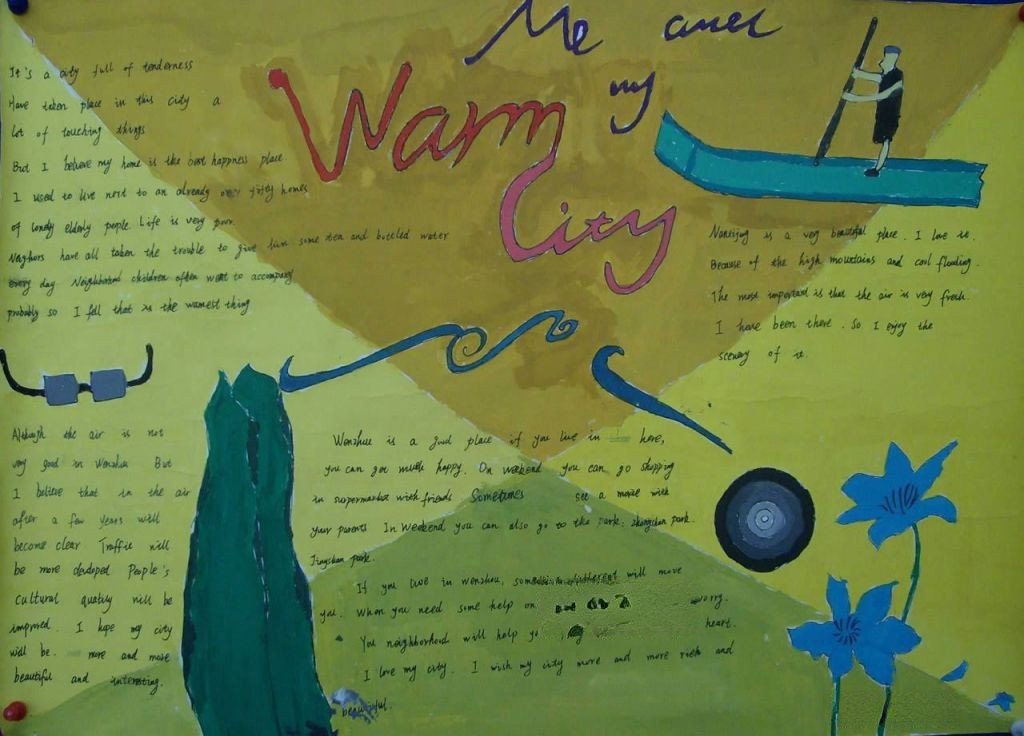 Me and my
Warm
City
It's a city full of tenderness
Have taken place in this city a
lot of touching things
But I believe my home is the best happness place
I used to live next to an already over fifty homes
of lonely elderly people. Life is very poor.
Neighors have all taken the trouble to give him some tea and bottled water
every day Neighborhood children often want to accompany
probably so I fell that is the warmest thing
Nanxijiang is a very beautiful place. I love it.
Because of the high mountains and cool flowing.
The most important is that the air is very fresh.
I have been there. So I enjoy the
scenery of it.
Although the air is not
very good in Wenzhou But
I believe that in the air
after a few years will
become clear Traffic will
be more developed People's
cultural quality will be
improved. I hope my city
will be more and more
beautiful and interesting.
Wenzhou is a good place if you live in here,
you can get much happy. On weekend you can go shopping
in supermarket with friends Sometimes see a movie with
your parents In weekend you can also go to the park: zhongshan park.
Jingshan park.
If you live in wenzhou, something different will move
you. When you need some help on worry.
You neighborhood will help yo heart.
I love my city. I wish my city more and more rich and
beautiful.